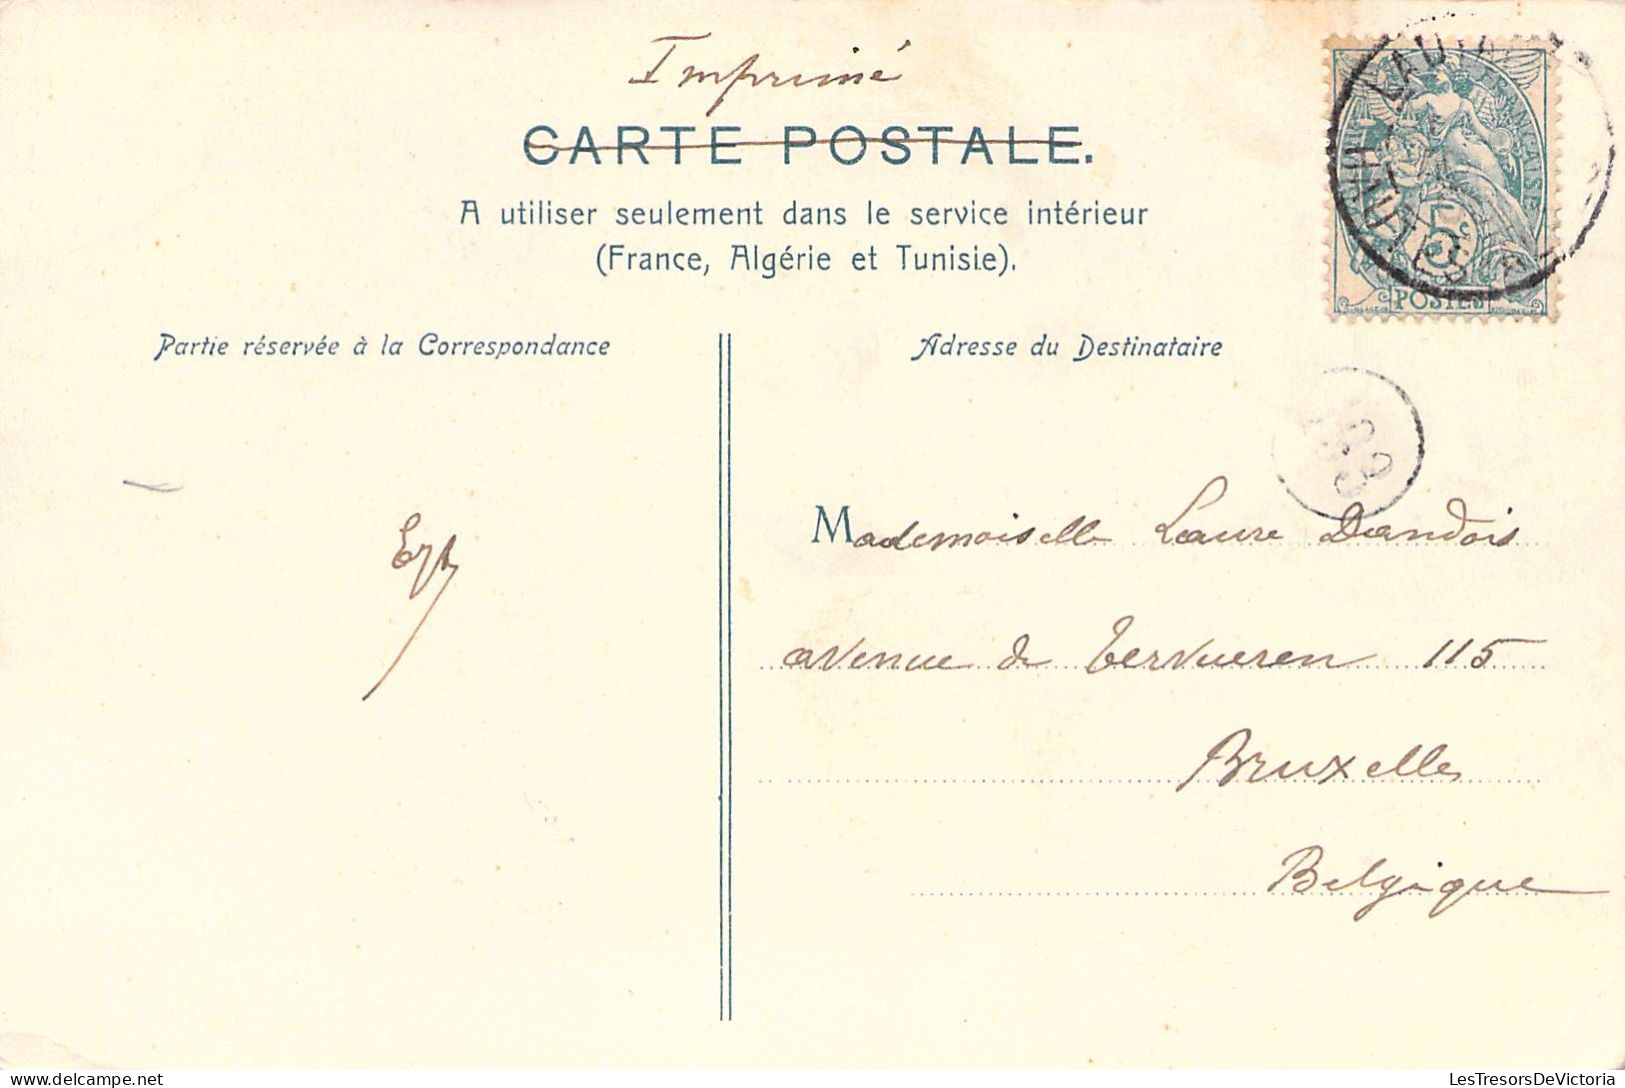 Imprimé
CARTE POSTALE.
A utiliser seulement dans le service intérieur
(France, Algérie et Tunisie).
Partie réservée à la Correspondance
Adresse du Destinataire
FRANÇAISE
5c
POSTES
HAUTES
Mademoiselle Laure Dandois
avenue de Tervueren 115
Bruxelles
Belgique
LesTresorsDeVictoria